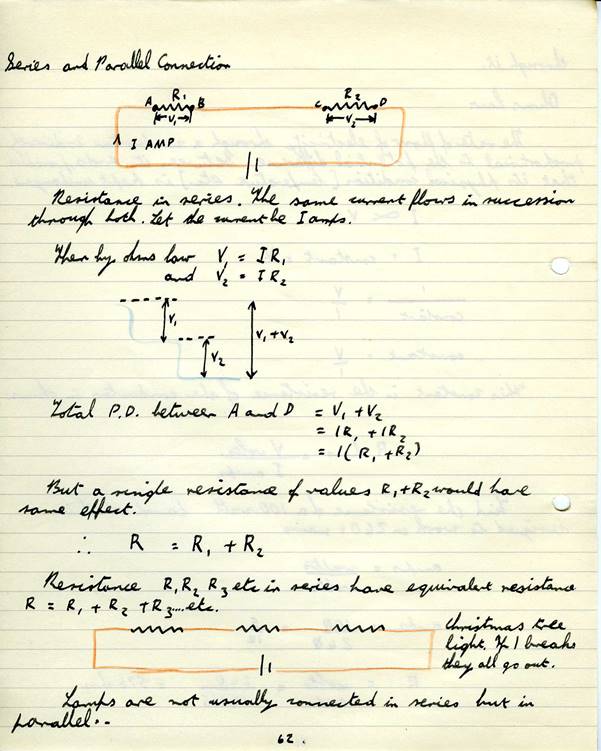 Series and Parallel Connection
R1 R2
A B C D
V1 V2
I AMP
Resistance in series. The same current flows in succession
through both. Let the current be I amps.
Then by ohms law V1 = IR1
and V2 = IR2
V1
V1+V2
V2
Total P.D. between A and D = V1 + V2
= IR1 + IR2
= I(R1 + R2)
But a single resistance of values R1+R2 would have
same effect.
∴ R = R1 + R2
Resistance R1 R2 R3 etc in series have equivalent resistance
R = R1 + R2 + R3....etc.
Christmas tree
light. If 1 breaks
they all go out.
Lamps are not usually connected in series but in
parallel:-
62.